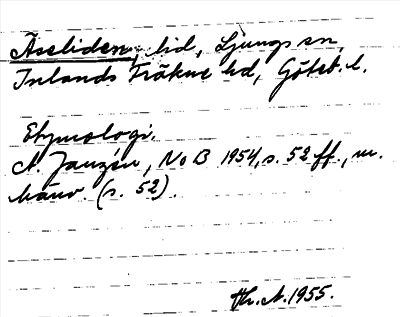 Åseliden, lid, Ljungs sn,
Inlands Fräkne hd, Göteb. l.
Etymologi.
A. Janzén, NoB 1954, s. 52 ff., m.
hänv. (s. 52).
Th. A. 1955.